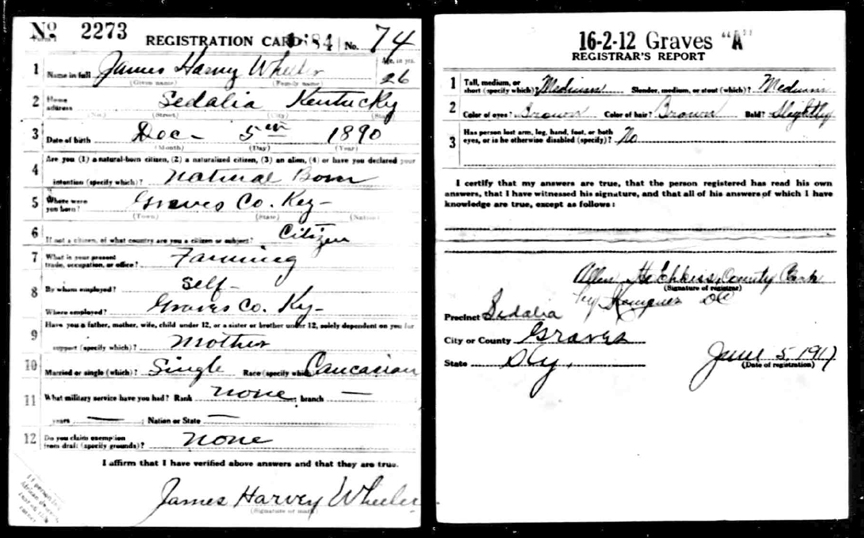 No. 2273 REGISTRATION CARD No. 74
1 Name in full James Harvey Wheeler Age, in yrs. 26
(Given name) (Family name)
2 Home address Sedalia Kentucky
(No.) (Street) (City) (State)
3 Date of birth Dec - 5th 1890
(Month) (Day) (Year)
4 Are you (1) a natural-born citizen, (2) a naturalized citizen, (3) an alien, (4) or have you declared your
intention (specify which)? Natural Born
5 Where were you born? Graves Co. Key -
(Town) (State) (Nation)
6 If not a citizen, of what country are you a citizen or subject? Citizen
7 What is your present trade, occupation, or office? Farming
8 By whom employed? Self -
Where employed? Graves Co. Ky -
9 Have you a father, mother, wife, child under 12, or a sister or brother under 12, solely dependent on you for
support (specify which)? Mother
10 Married or single (which)? Single Race (specify which)? Caucasian
11 What military service have you had? Rank none, branch —
years — ; Nation or State —
12 Do you claim exemption from draft (specify grounds)? none
I affirm that I have verified above answers and that they are true.
James Harvey Wheeler
(Signature or mark)
16-2-12 Graves "A"
REGISTRAR'S REPORT
1 Tall, medium, or short (specify which)? Medium Slender, medium, or stout (which)? Medium
2 Color of eyes? Brown Color of hair? Brown Bald? Slightly
3 Has person lost arm, leg, hand, foot, or both eyes, or is he otherwise disabled (specify)? No
I certify that my answers are true, that the person registered has read his own
answers, that I have witnessed his signature, and that all of his answers of which I have
knowledge are true, except as follows:
Allen County Clerk
(Signature of registrar)
by DC
Precinct Sedalia
City or County Graves
State Ky. June 5 1917
(Date of registration)